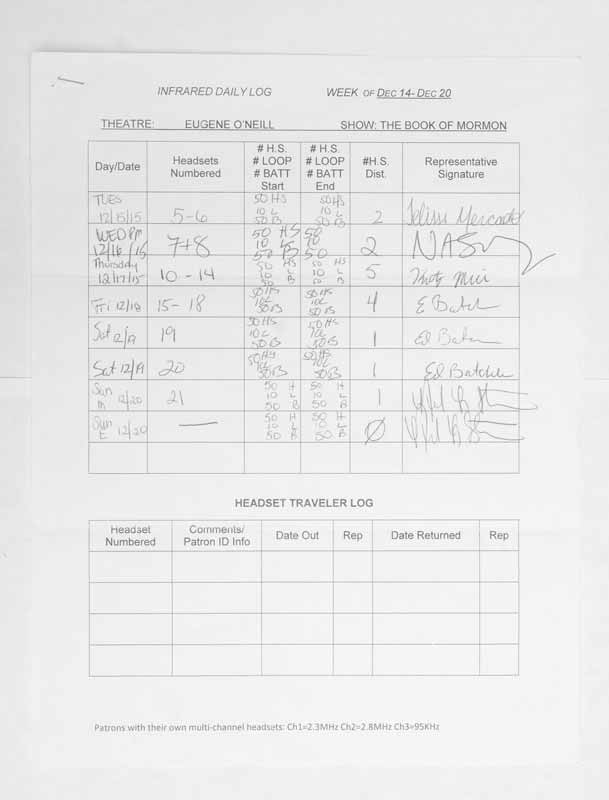 INFRARED DAILY LOG WEEK OF DEC 14- DEC 20
THEATRE: EUGENE O'NEILL SHOW: THE BOOK OF MORMON
Day/Date Headsets Numbered # H.S. # LOOP # BATT Start # H.S. # LOOP # BATT End #H.S. Dist. Representative Signature
TUES 12/15/15 5-6 50 HS 10 L 50 B 50 HS 10 L 50 B 2
WED PM 12/16/15 7+8 50 HS 10 50 B 50 10 50 2
Thursday 12/17/15 10-14 50 HS 10 L 50 B 50 HS 10 L 50 B 5
Fri 12/18 15-18 50 HS 10L 50B 50 HS 10L 50B 4 E Batch
Sat 12/19 19 50 HS 10 L 50 B 50 HS 10 L 50 B 1
Sat 12/19 20 50 HS 10L 50B 50 HS 10L 50B 1
Sun m 12/20 21 50 H 10 L 50 B 50 H 10 L 50 B 1
Sun E 12/20 — 50 H 10 L 50 B 50 H 10 L 50 B Ø
HEADSET TRAVELER LOG
Headset Numbered Comments/ Patron ID Info Date Out Rep Date Returned Rep
Patrons with their own multi-channel headsets: Ch1=2.3MHz Ch2=2.8MHz Ch3=95KHz